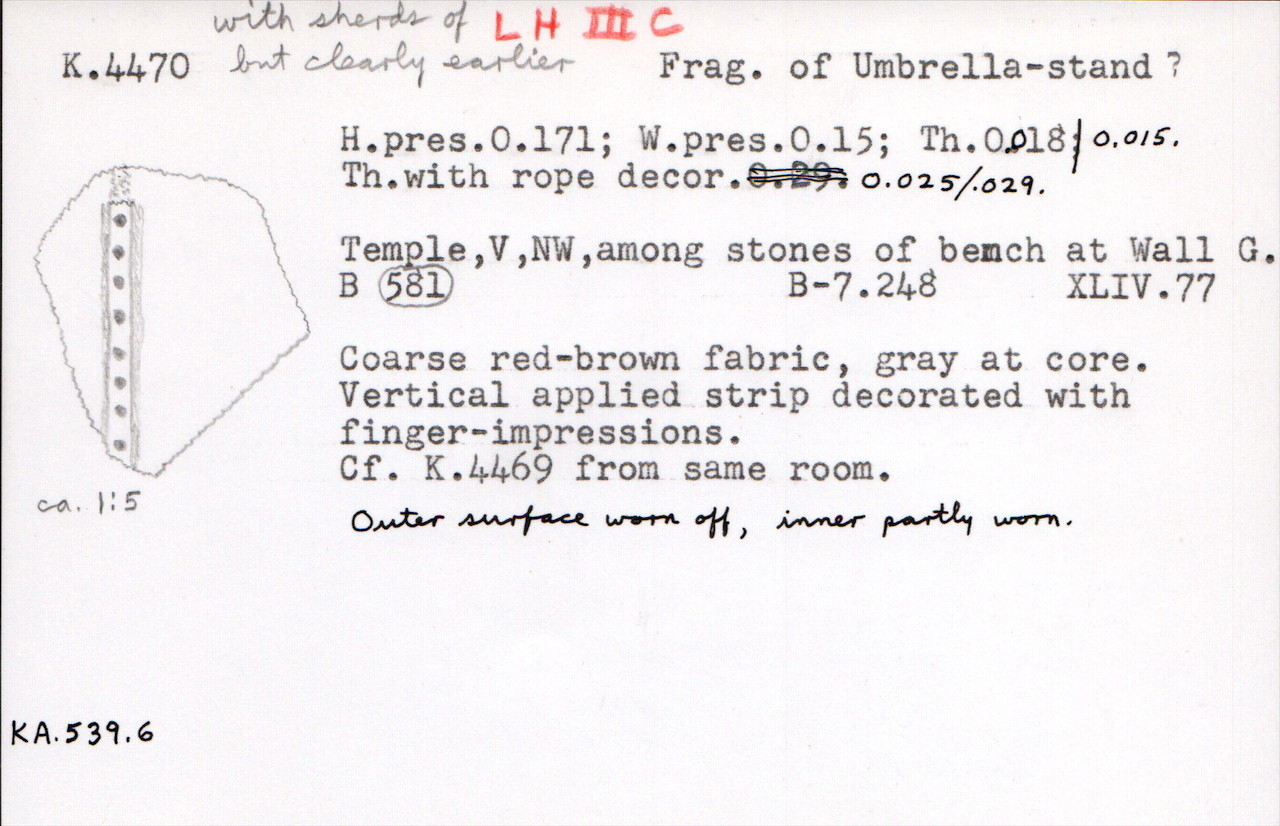 with sherds of LH III C
K.4470 but clearly earlier Frag. of Umbrella-stand ?
H.pres.0.171; W.pres.0.15; Th.0.018/0.015.
Th.with rope decor.0.29. 0.025/.029.
Temple,V,NW,among stones of bench at Wall G.
B 581 B-7.248 XLIV.77
Coarse red-brown fabric, gray at core.
Vertical applied strip decorated with
finger-impressions.
Cf. K.4469 from same room.
ca. 1:5
Outer surface worn off, inner partly worn.
KA.539.6